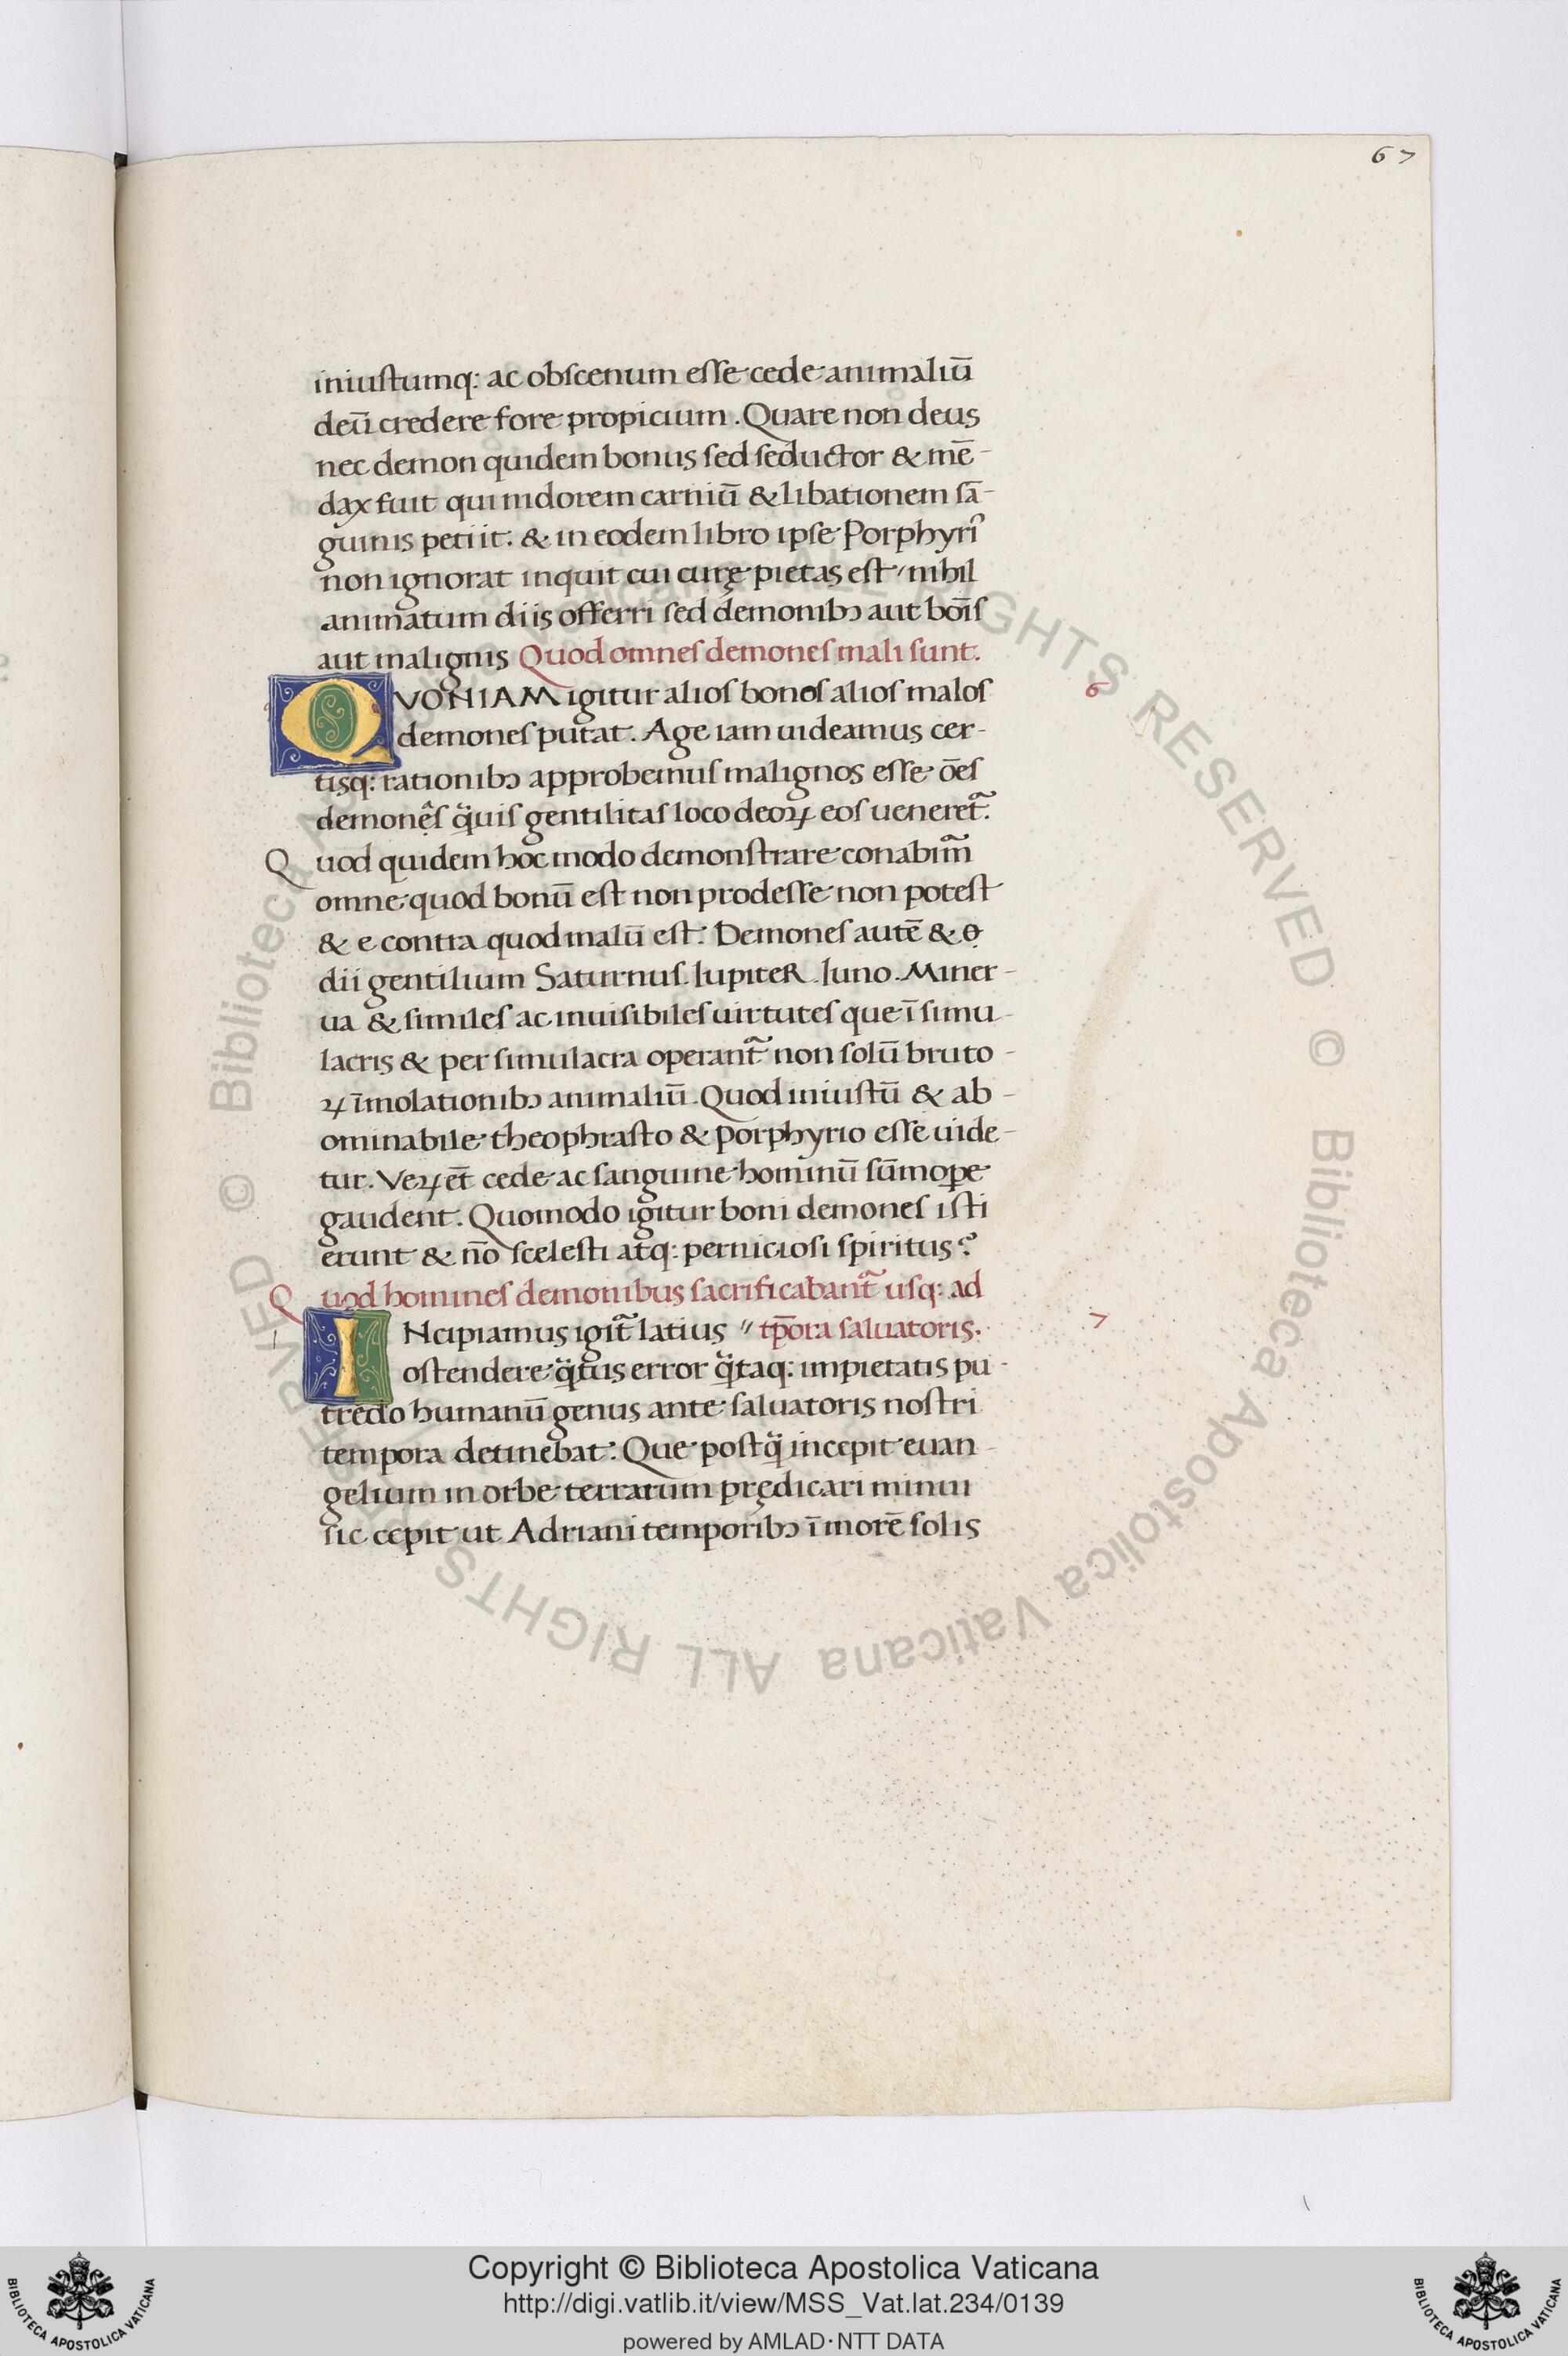 67
iniustumq: ac obscenum esse cede animaliū
deū credere fore propicium. Quare non deus
nec demon quidem bonus sed seductor & mē-
dax fuit qui nidorem carniū & libationem sā-
guinis petiit. & in eodem libro ipse Porphyriꝰ
non ignorat inquit cui curę pietas est nihil
animatum diis offerri sed demonibꝫ aut boīs
aut malignis Quod omnes demones mali sunt.
QVONIAM igitur alios bonos alios malos 6
demones putat. Age iam uideamus cer-
tisq: rationibꝫ approbemus malignos esse ōes
demones q̈uis gentilitas loco deoꝝ eos ueneret᷑.
Quod quidem hoc modo demonstrare conabim᷑
omne quod bonū est non prodesse non potest
& e contra quod malū est. Demones autē & o
dii gentilium Saturnus. Iupiter. Iuno. Miner-
ua & similes ac inuisibiles uirtutes que ī simu-
lacris & per simulacra operant᷑ non solū bruto-
ꝝ īmolationibꝫ animaliū. Quod iniustū & ab-
ominabile theophrasto & porphyrio esse uide-
tur. Veꝝ et̄ cede ac sanguine hominū sūmope
gaudent. Quomodo igitur boni demones isti
erunt & nō scelesti atq: perniciosi spiritus?
Quod homines demonibus sacrificabant᷑ usq: ad
INcipiamus igit᷑ latius // tp̄ora saluatoris. 7
ostendere q̈tus error q̈taq: impietatis pu-
tredo humanū genus ante saluatoris nostri
tempora detinebat. Que postq̈ incepit euan-
gelium in orbe terrarum prędicari minui
sic cepit ut Adriani temporibꝫ ī morē solis
© Biblioteca Apostolica Vaticana ALL RIGHTS RESERVED © Biblioteca Apostolica Vaticana ALL RIGHTS RESERVED
Copyright © Biblioteca Apostolica Vaticana
http://digi.vatlib.it/view/MSS_Vat.lat.234/0139
powered by AMLAD·NTT DATA
BIBLIOTECA APOSTOLICA VATICANA
BIBLIOTECA APOSTOLICA VATICANA